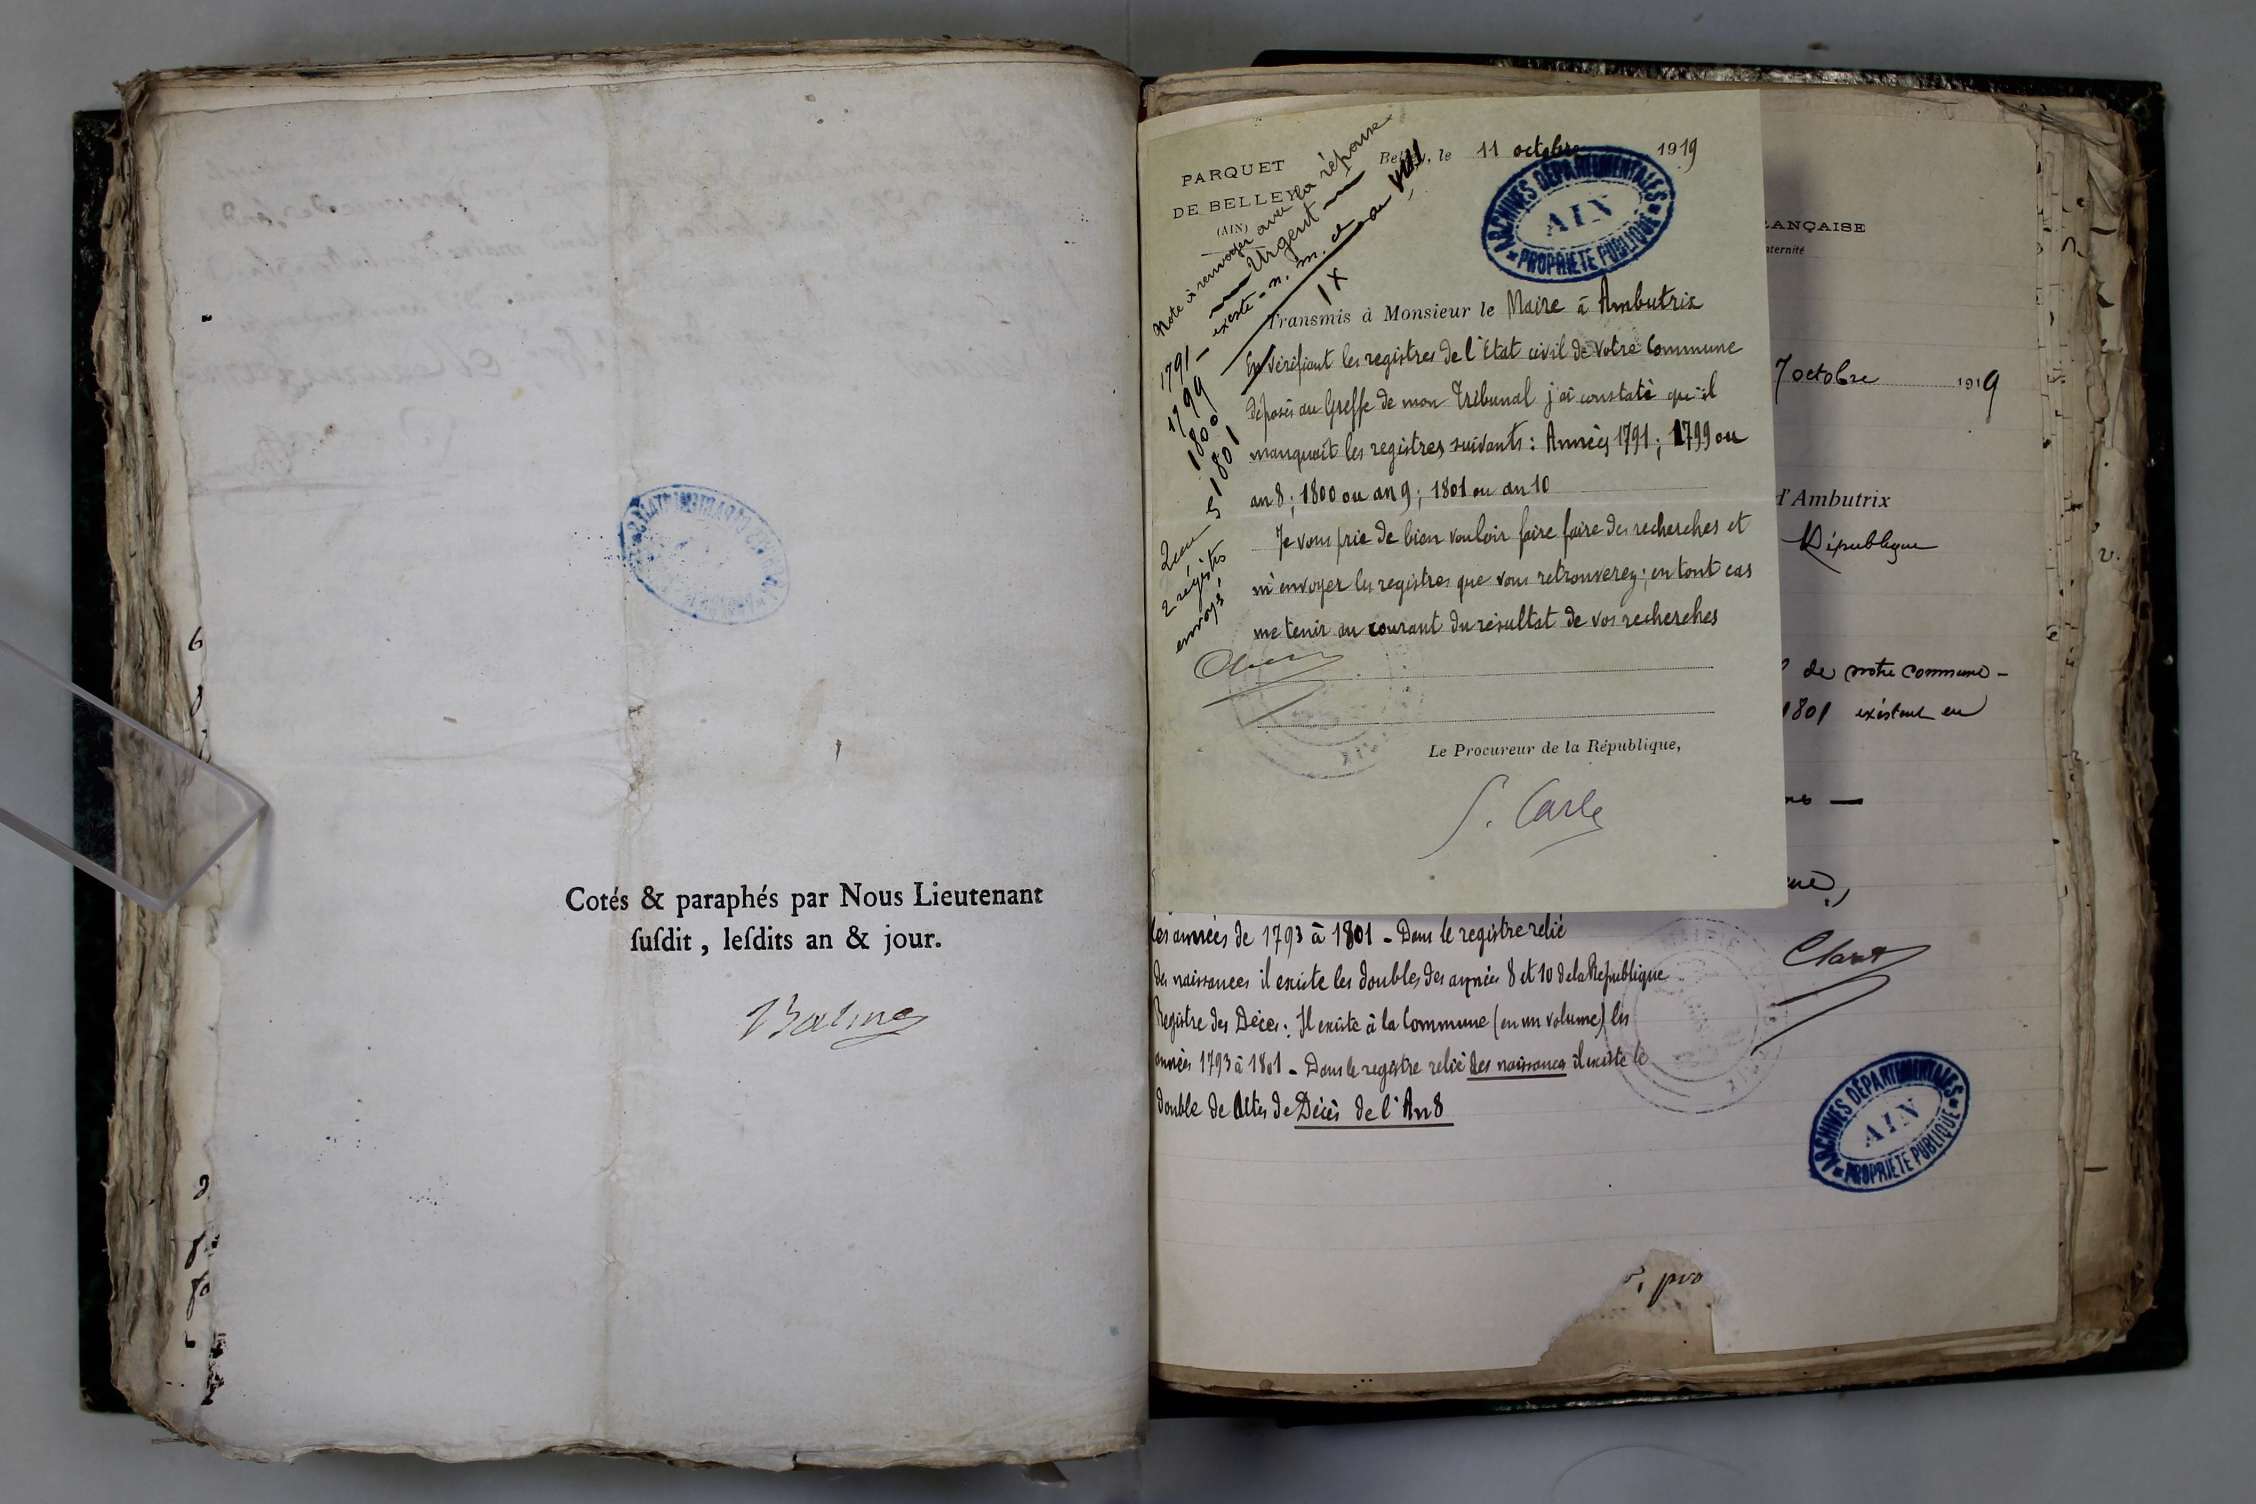 Cotés & paraphés par Nous Lieutenant
ſuſdit, leſdits an & jour.
Balme
PARQUET
DE BELLEY
(AIN)
Belley, le 11 octobre 1919
ARCHIVES DÉPARTEMENTALES
AIN
PROPRIÉTÉ PUBLIQUE
Note à renvoyer avec la réponse
Urgent
existe - n. m. et
IX
1791 -
1799
1800
1801
2 régistres
envoyé
Transmis à Monsieur le Maire à Ambutrix
En vérifiant les registres de l'Etat civil de votre Commune
déposés au Greffe de mon Tribunal j'ai constaté qu'il
manquait les registres suivants : Années 1791 ; 1799 ou
an 8 ; 1800 ou an 9 ; 1801 ou an 10
Je vous prie de bien vouloir faire faire des recherches et
m'envoyer les registres que vous retrouverez ; en tout cas
me tenir au courant du résultat de vos recherches
Le Procureur de la République,
S. Carle
ANÇAISE
ternité
7 octobre 1919
d'Ambutrix
République
de notre commune -
1801 existent en
les années de 1793 à 1801 - Dans le registre relié
des naissances il existe les doubles des années 8 et 10 de la République
Registre des Décès : Il existe à la Commune (en un volume) les
années 1793 à 1801 - Dans le registre relié des naissances il existe le
double de Actes de Décès de l'An 8
ARCHIVES DÉPARTEMENTALES
AIN
PROPRIÉTÉ PUBLIQUE